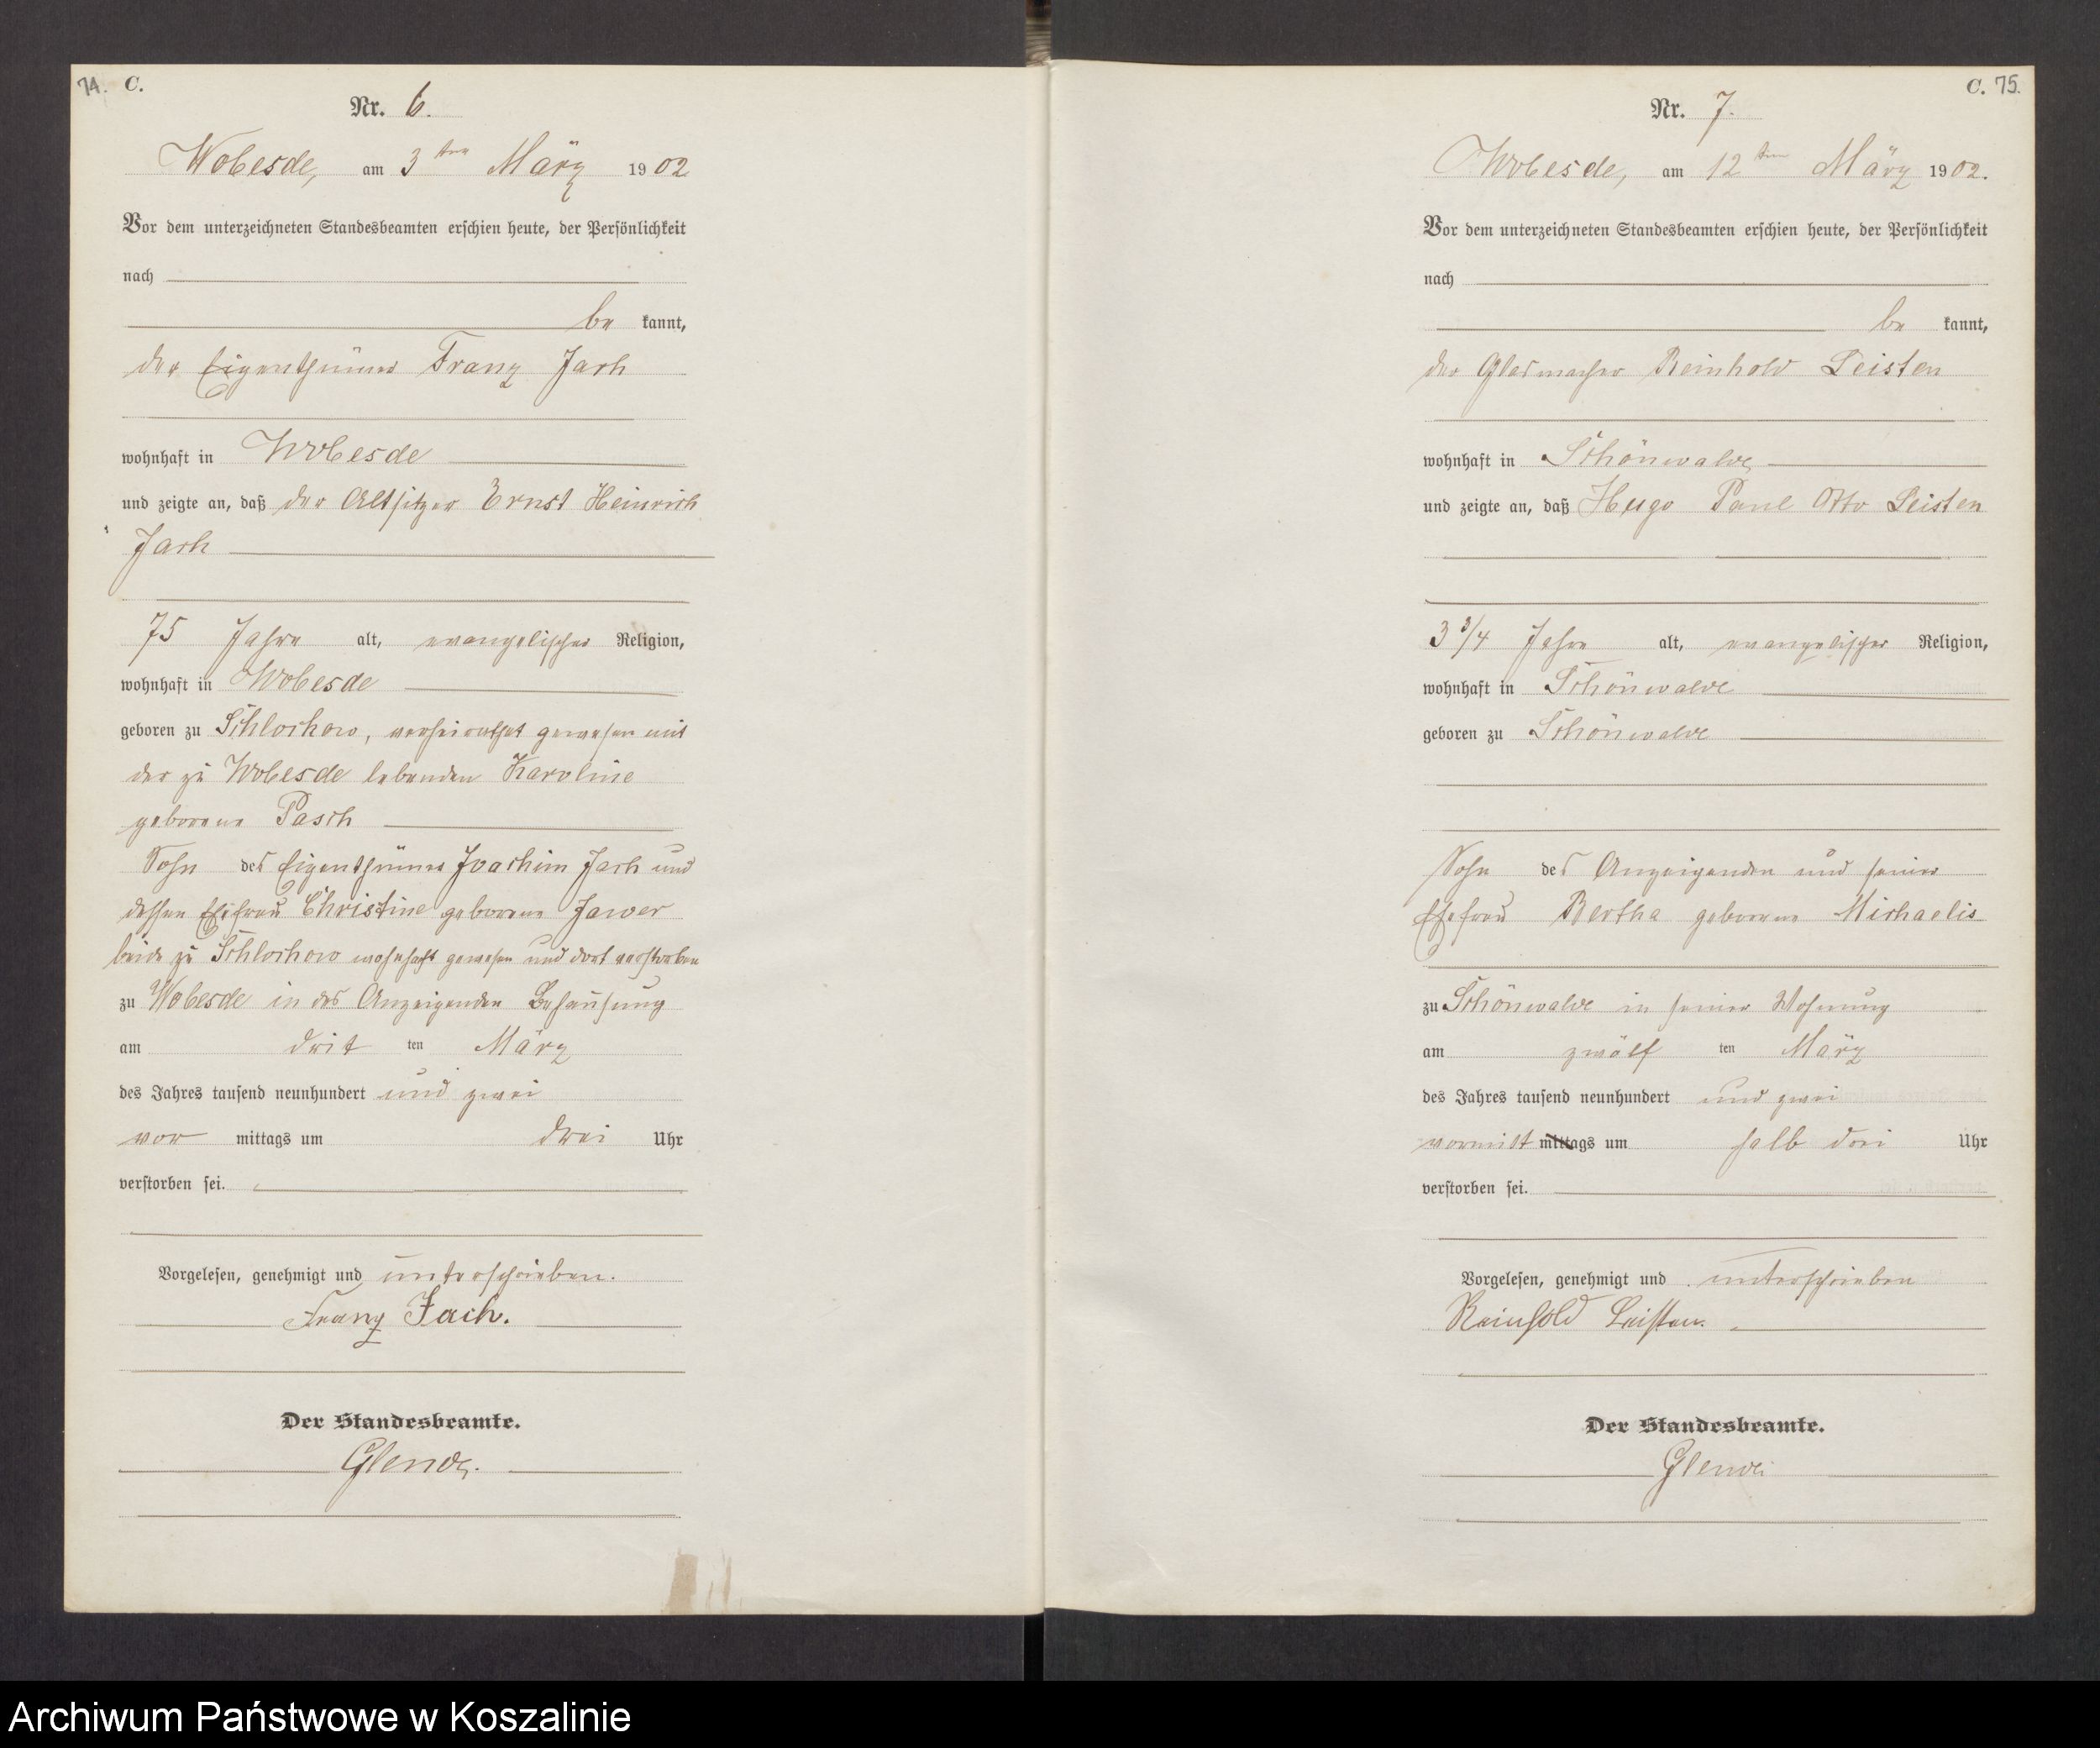 74. C.
Nr. 6.
Wobesde, am 3ten März 1902
Vor dem unterzeichneten Standesbeamten erschien heute, der Persönlichkeit
nach
be kannt,
der Eigenthümer Franz Jach
wohnhaft in Wobesde
und zeigte an, daß der Altsitzer Ernst Heinrich
Jach
75 Jahre alt, evangelischer Religion,
wohnhaft in Wobesde
geboren zu Schlochow, verheirathet gewesen mit
der zu Wobesde lebenden Karoline
geborene Pasch
Sohn des Eigenthümer Joachim Jach und
dessen Ehefrau Christine geborene Jawer
beide zu Schlochow wohnhaft gewesen und dort verstorben
zu Wobesde in des Anzeigenden Behausung
am drit ten März
des Jahres tausend neunhundert und zwei
vor mittags um drei Uhr
verstorben sei.
Vorgelesen, genehmigt und unterschrieben.
Franz Jach.
Der Standesbeamte.
Glende.
C. 75.
Nr. 7.
Wobesde, am 12ten März 1902.
Vor dem unterzeichneten Standesbeamten erschien heute, der Persönlichkeit
nach
be kannt,
der Glasmacher Reinhold Leisten
wohnhaft in Schönwalde
und zeigte an, daß Hugo Paul Otto Leisten
3 3/4 Jahre alt, evangelischer Religion,
wohnhaft in Schönwalde
geboren zu Schönwalde
Sohn des Anzeigenden und seiner
Ehefrau Bertha geborene Michaelis
zu Schönwalde in seiner Wohnung
am zwölf ten März
des Jahres tausend neunhundert und zwei
vormitt mittags um halb drei Uhr
verstorben sei.
Vorgelesen, genehmigt und unterschrieben
Reinhold Leisten.
Der Standesbeamte.
Glende
Archiwum Państwowe w Koszalinie